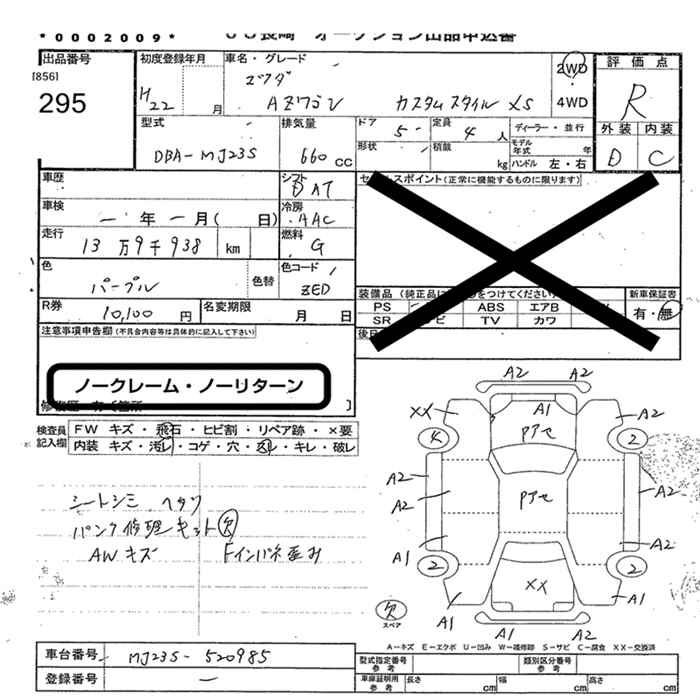 *0002009*
JU長崎 オークション出品申込書
出品番号
[856]
295
初度登録年月
H22 月
車名・グレード
マツダ
AZワゴン カスタムスタイル XS
2WD
4WD
評価点
R
外装 内装
D C
型式
DBA-MJ23S
排気量
660 CC
ドア 5
定員 4 人
形状
積載 kg
ディーラー・並行
モデル年式 年
ハンドル 左・右
車歴
車検 ー年ー月( 日)
走行 13万9千938 km
色
パープル
色替
シフト
DAT
冷房
AAC
燃料
G
色コード
ZED
R券
10,100 円
名変期限 月 日
セールスポイント(正常に機能するものに限ります)
装備品
PS ABS エアB
SR TV カワ
新車保証書
有・無
注意事項申告欄(不具合内容等は具体的に記入して下さい)
ノークレーム・ノーリターン
検査員記入欄
FW キズ・飛石・ヒビ割・リペア跡・×要
内装 キズ・汚レ・コゲ・穴・スレ・キレ・破レ
シートシミ ヘタリ
パンク修理キット欠
AWキズ Fインパネ歪み
A2 A2
XX A1 A2
4 Pアセ 2
A2 A2
A2 Pアセ
A1 A2
2 2
XX
A1 A1
A1
欠
スペア
A-キズ E-エクボ U-凹み W-補修跡 S-サビ C-腐食 XX-交換済
車台番号 MJ23S-520985
登録番号 ー
型式指定番号 参考
類別区分番号 参考
車庫証明用 参考
長さ cm 幅 cm 高さ cm